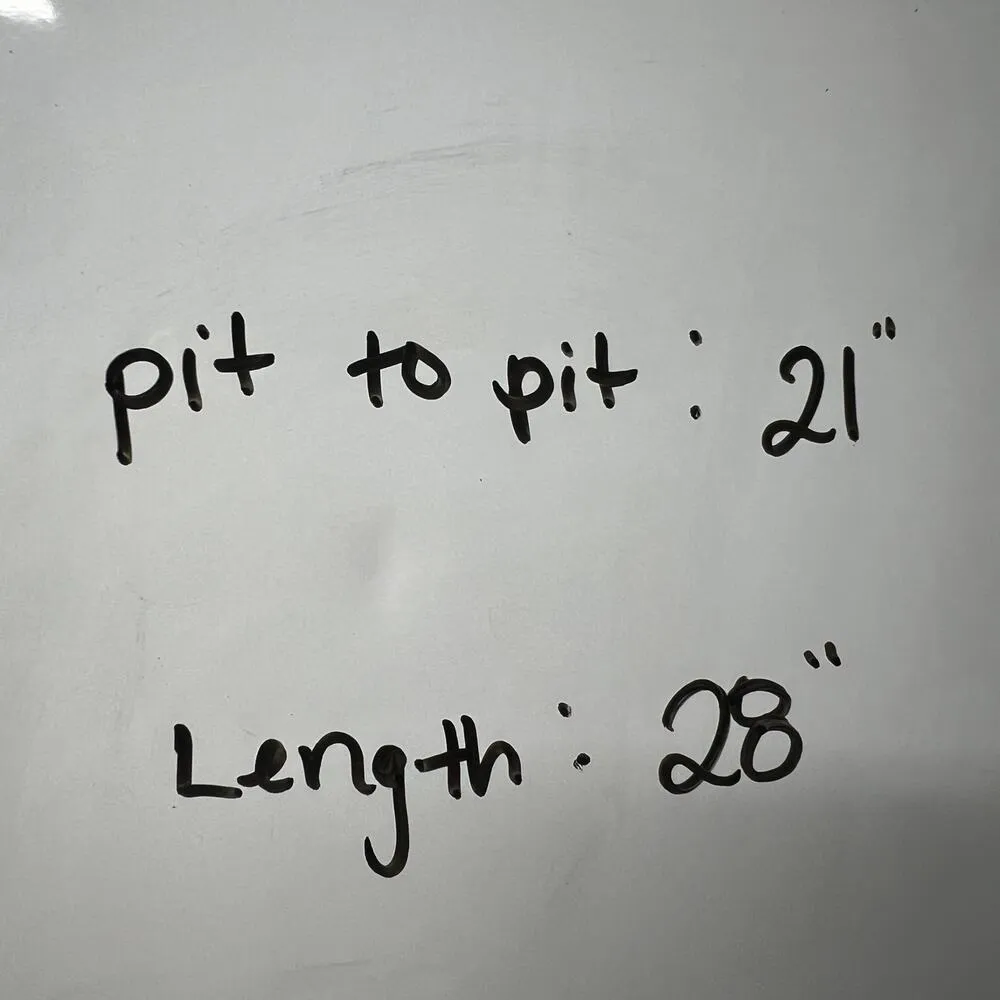 pit to pit : 21"
Length : 28"